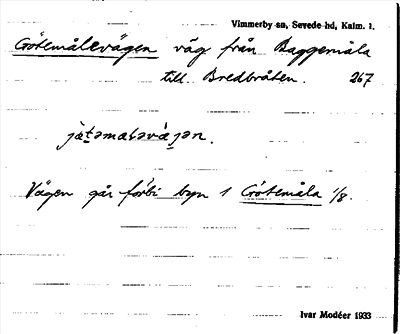 Vimmerby sn, Sevede hd, Kalm. l.
Götemålavägen väg från Baggemåla
till Bredbråten. 267
Vägen går förbi byn i Götemåla 1/8.
Ivar Modéer 1933